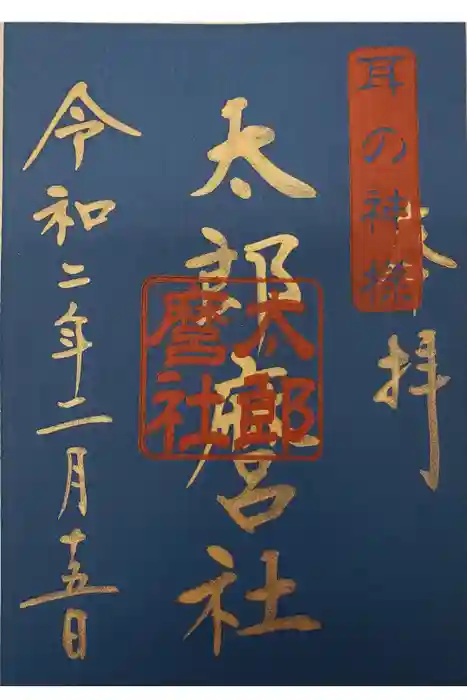 耳の神様
奉拝
太郎麿社
太郎
麿社
令和二年二月十五日